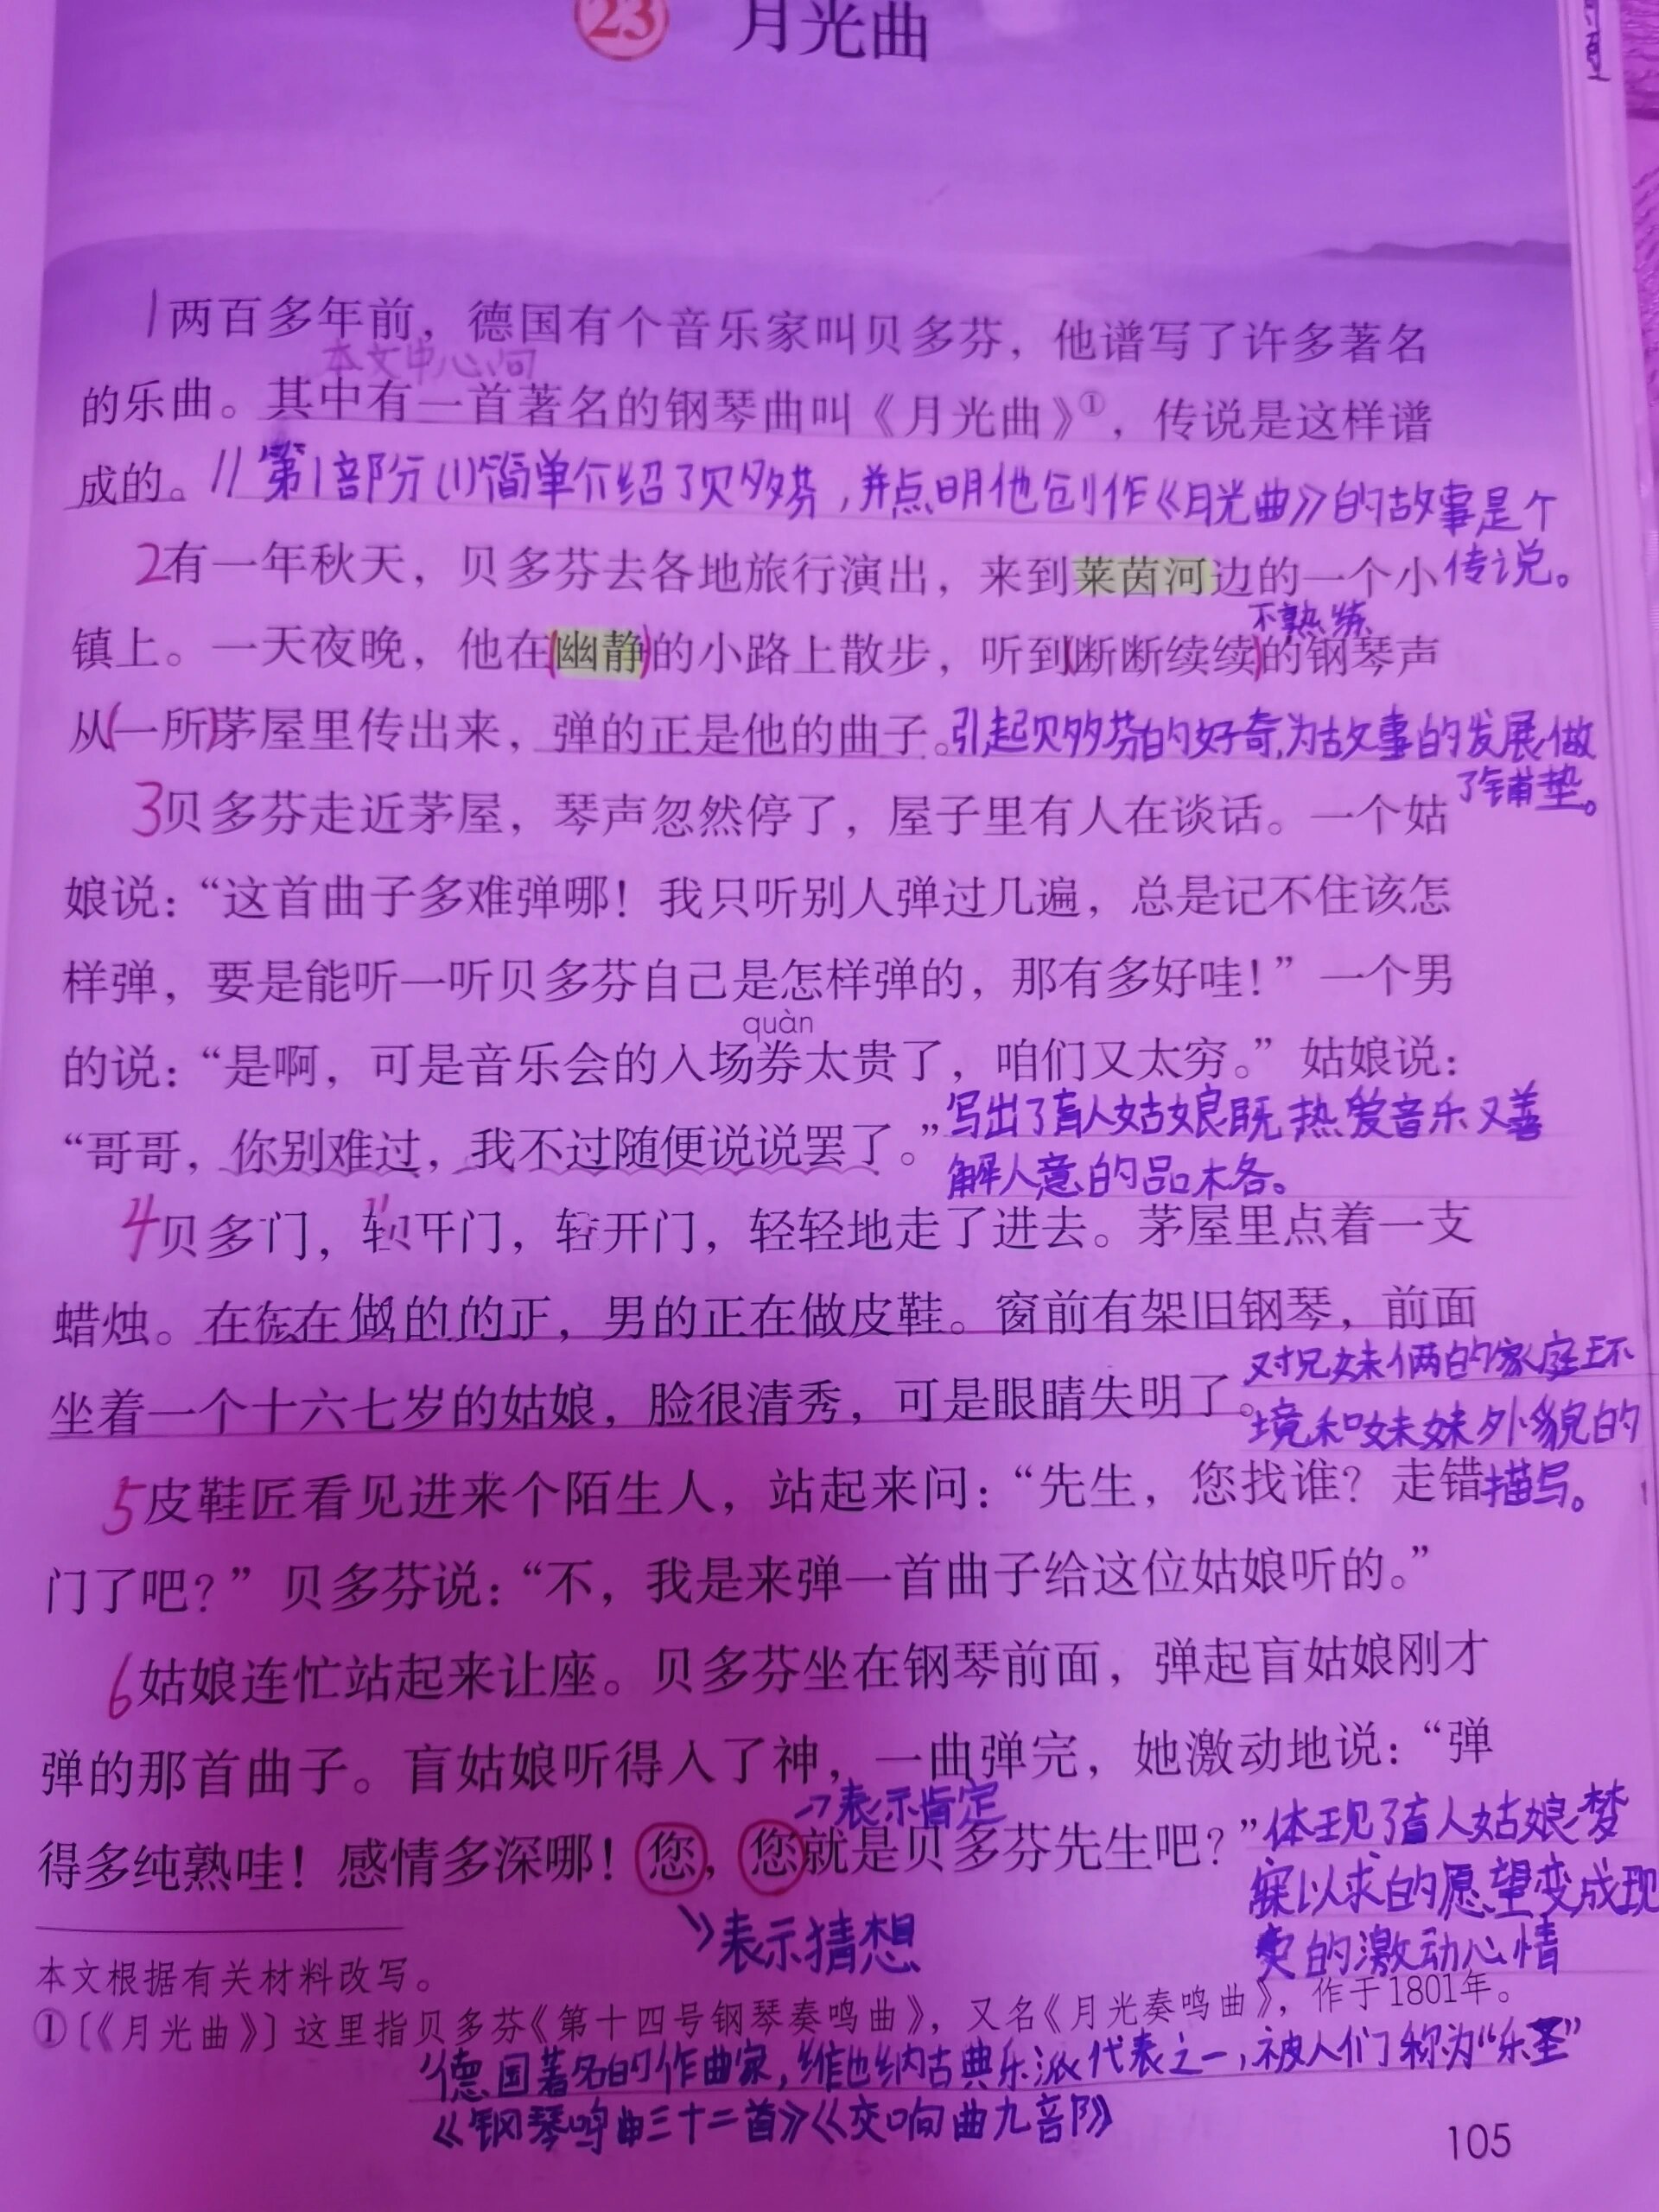 23 月光曲
1两百多年前，德国有个音乐家叫贝多芬，他谱写了许多著名
本文中心句
的乐曲。其中有一首著名的钢琴曲叫《月光曲》①，传说是这样谱
成的。//第1部分(1)简单介绍了贝多芬，并点明他创作《月光曲》的故事是个
2有一年秋天，贝多芬去各地旅行演出，来到莱茵河边的一个小传说。
不熟练
镇上。一天夜晚，他在(幽静)的小路上散步，听到(断断续续)的钢琴声
从(一所)茅屋里传出来，弹的正是他的曲子。引起贝多芬的好奇，为故事的发展做
了铺垫。
3贝多芬走近茅屋，琴声忽然停了，屋子里有人在谈话。一个姑
娘说：“这首曲子多难弹哪！我只听别人弹过几遍，总是记不住该怎
样弹，要是能听一听贝多芬自己是怎样弹的，那有多好哇！”一个男
quàn
的说：“是啊，可是音乐会的入场券太贵了，咱们又太穷。”姑娘说：
“哥哥，你别难过，我不过随便说说罢了。”写出了盲人姑娘既热爱音乐又善
解人意的品格。
4贝多门，开门，开门，轻轻地走了进去。茅屋里点着一支
蜡烛。在在做的的正，男的正在做皮鞋。窗前有架旧钢琴，前面
坐着一个十六七岁的姑娘，脸很清秀，可是眼睛失明了。对兄妹俩的家庭环
境和妹妹外貌的
5皮鞋匠看见进来个陌生人，站起来问：“先生，您找谁？走错描写。
门了吧？”贝多芬说：“不，我是来弹一首曲子给这位姑娘听的。”
6姑娘连忙站起来让座。贝多芬坐在钢琴前面，弹起盲姑娘刚才
弹的那首曲子。盲姑娘听得入了神，一曲弹完，她激动地说：“弹
→表示肯定
得多纯熟哇！感情多深哪！您，您就是贝多芬先生吧？”体现了盲人姑娘梦
寐以求的愿望变成现
表示猜想
实的激动心情
本文根据有关材料改写。
①〔《月光曲》〕这里指贝多芬《第十四号钢琴奏鸣曲》，又名《月光奏鸣曲》，作于1801年。
德国著名的作曲家，维也纳古典乐派代表之一，被人们称为“乐圣”
《钢琴鸣曲三十二首》《交响曲九部》
105